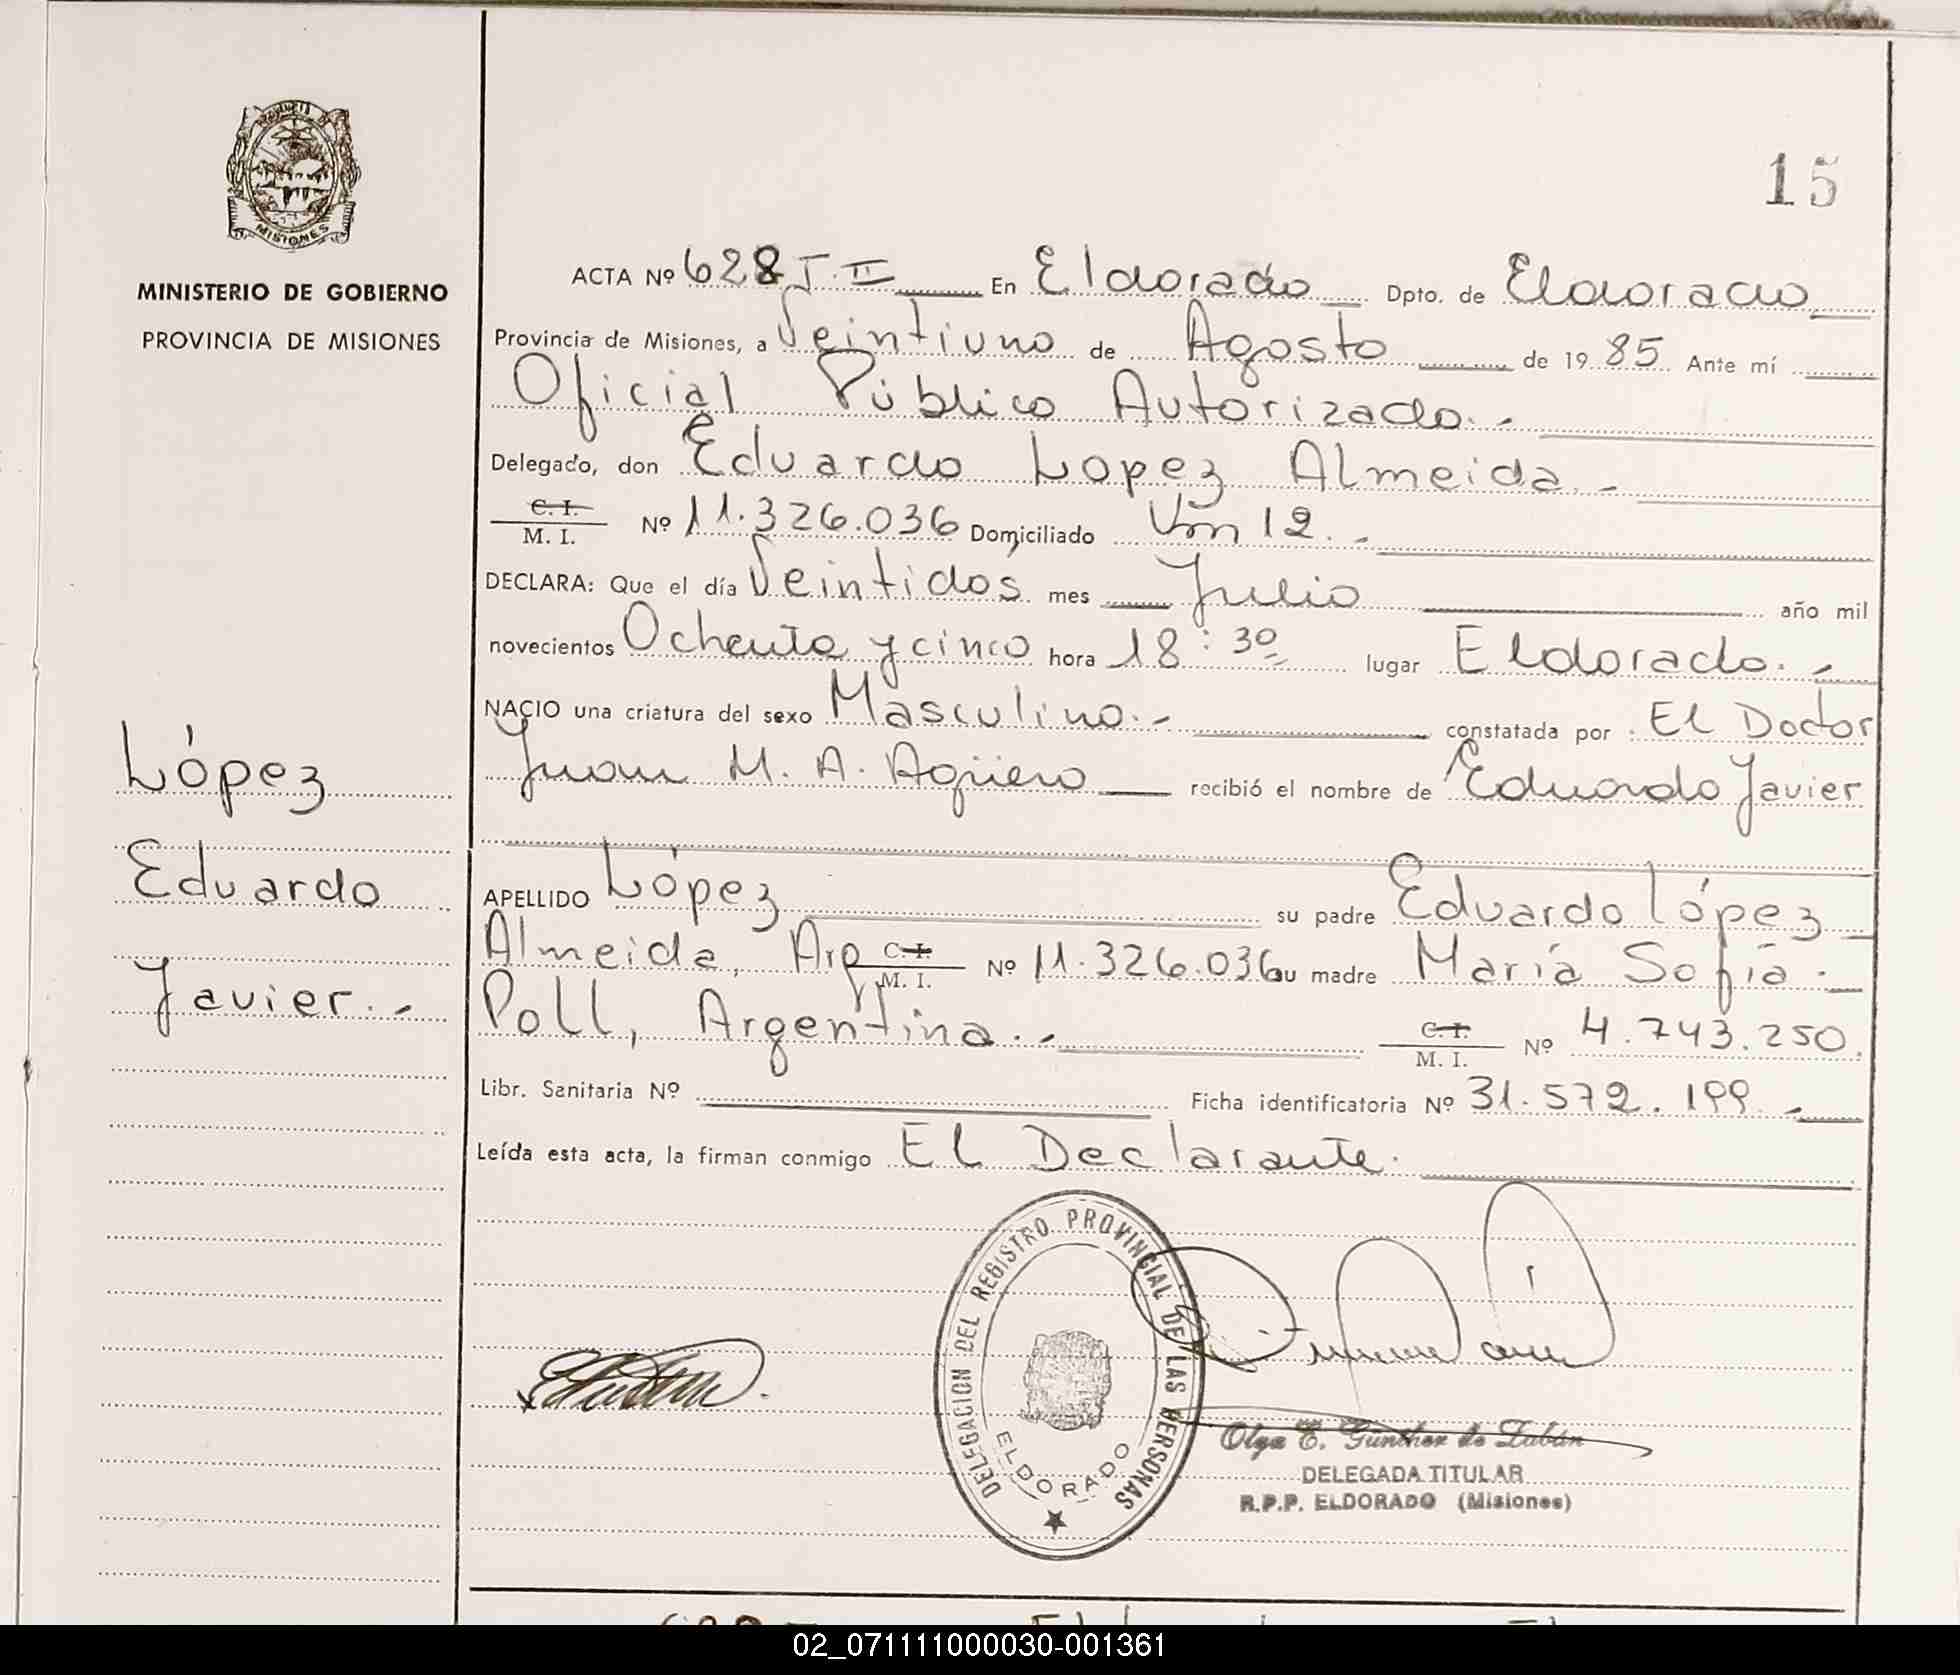 PROVINCIA DE
MISIONES
MINISTERIO DE GOBIERNO
PROVINCIA DE MISIONES
López
Eduardo
Javier.-
15
ACTA Nº 628 T. II En Eldorado Dpto. de Eldorado
Provincia de Misiones, a Veintiuno de Agosto de 1985. Ante mí
Oficial Público Autorizado.-
Delegado, don Eduardo Lopez Almeida.-
C. I.
M. I. Nº 11.326.036 Domiciliado Km 12.-
DECLARA: Que el día Veintidos mes Julio año mil
novecientos Ochenta y cinco hora 18:30 lugar Eldorado.-
NACIO una criatura del sexo Masculino.- constatada por El Doctor
Juan M. A. Agüero recibió el nombre de Eduardo Javier
APELLIDO López su padre Eduardo López
Almeida, Arg C. I. M. I. Nº 11.326.036 su madre María Sofía
Poll, Argentina.- C. I. M. I. Nº 4.743.250.
Libr. Sanitaria Nº Ficha identificatoria Nº 31.572.199.-
Leída esta acta, la firman conmigo El Declarante.
DELEGACION DEL REGISTRO PROVINCIAL DE LAS PERSONAS
ELDORADO
Olga E. Günther de Zubán
DELEGADA TITULAR
R.P.P. ELDORADO (Misiones)
02_071111000030-001361